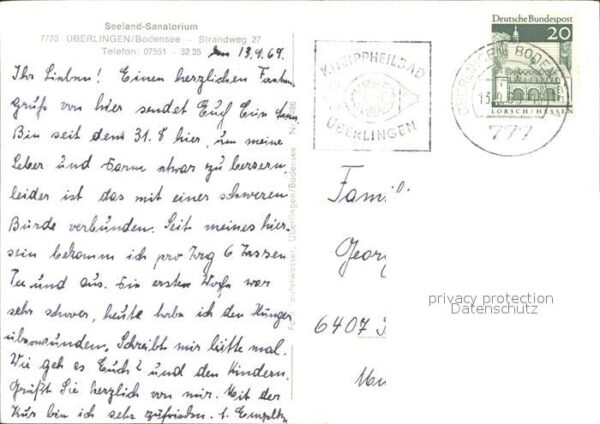 Seeland-Sanatorium
7770 ÜBERLINGEN/Bodensee - Strandweg 27
Telefon: 07551 - 3235
den 13.9.69.
Ihr Lieben! Einen herzlichen
Gruß von hier sendet Euch
Bin seit dem 31.8 hier, um meine
Leber und Darm etwas zu bessern,
leider ist das mit einer schweren
Bürde verbunden. Seit meines hier
sein bekomm ich pro Tag 6 Tassen
Tee und aus. Die ersten Woche war
sehr schwer, heute habe ich den Hunger
überwunden. Schreibt mir bitte mal.
Wie geh es Euch? und den Kindern.
Grüßt Sie herzlich von mir. Mit der
Kur bin ich sehr zufrieden.
Überlingen/Bodensee
KNEIPPHEILBAD
ÜBERLINGEN
Deutsche Bundespost
20
LORSCH/HESSEN
777
Fami
Georg
6407
privacy protection
Datenschutz